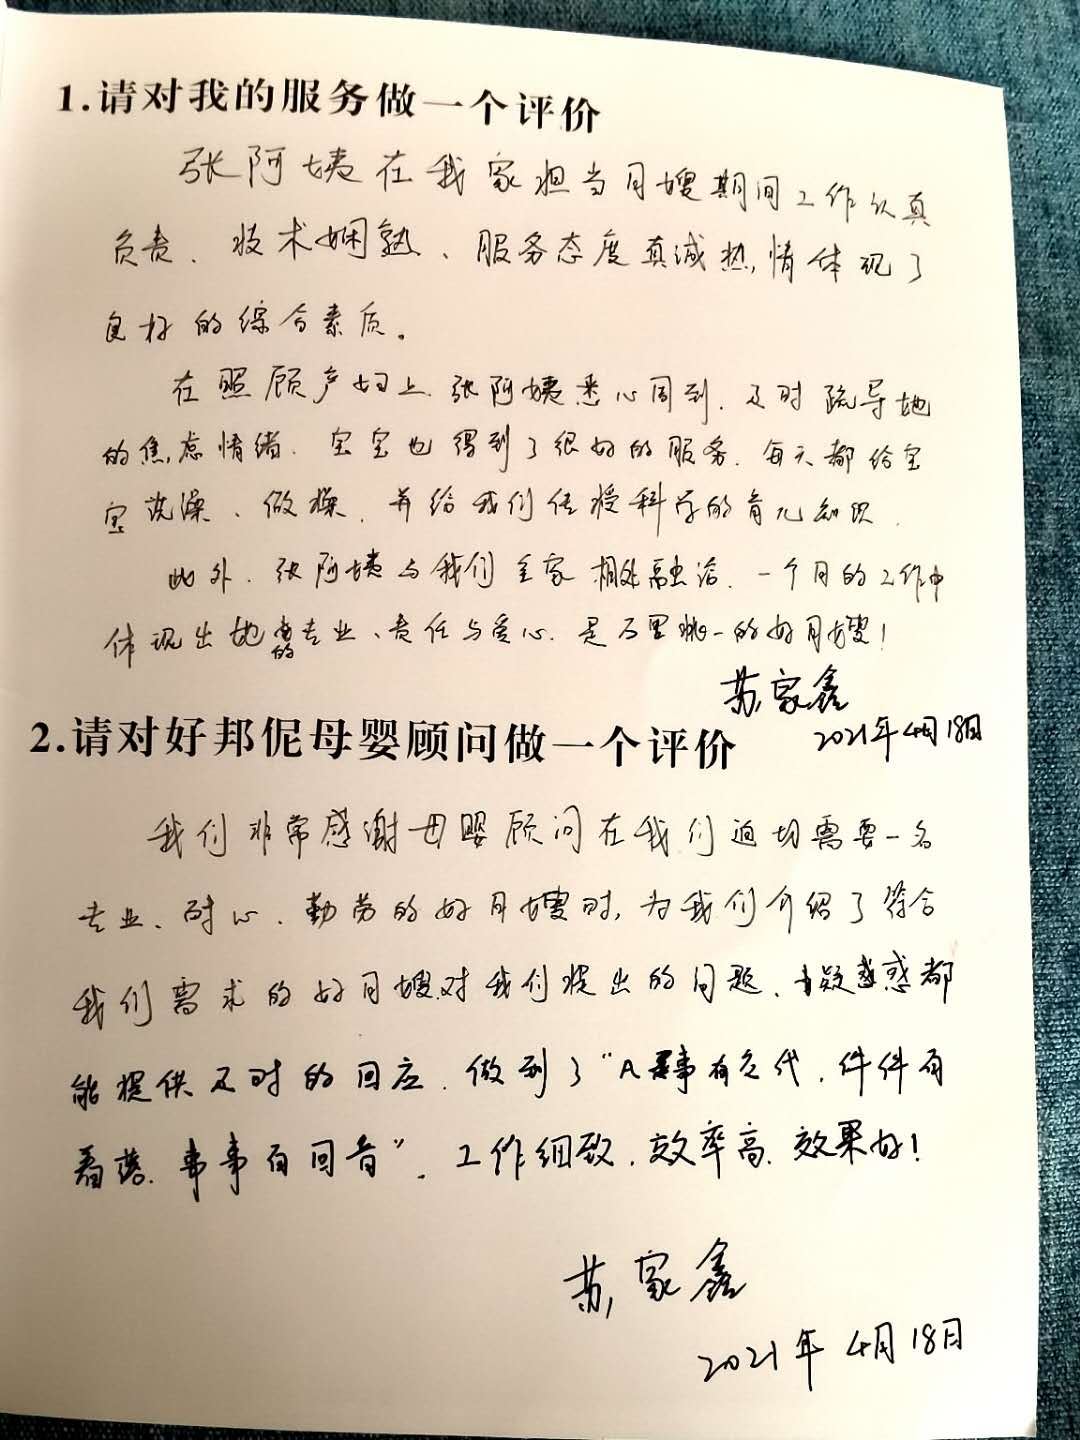 1.请对我的服务做一个评价
张阿姨在我家担当月嫂期间工作认真
负责、技术娴熟、服务态度真诚热情体现了
良好的综合素质。
在照顾产妇上,张阿姨悉心周到,及时疏导地
的焦虑情绪.宝宝也得到了很好的服务.每天都给宝
宝洗澡、做操,并给我们传授科学的育儿知识.
此外,张阿姨与我们全家相处融洽.一个月的工作中
体现出地的专业、责任与爱心.是万里挑一的好月嫂!
苏家鑫
2021年4月18日
2.请对好邦伲母婴顾问做一个评价
我们非常感谢母婴顾问在我们迫切需要一名
专业、耐心、勤劳的好月嫂时,为我们介绍了符合
我们需求的好月嫂.对我们提出的问题、疑惑都
能提供及时的回应.做到了“凡事有交代,件件有
着落,事事有回音”.工作细致.效率高.效果好!
苏家鑫
2021年4月18日